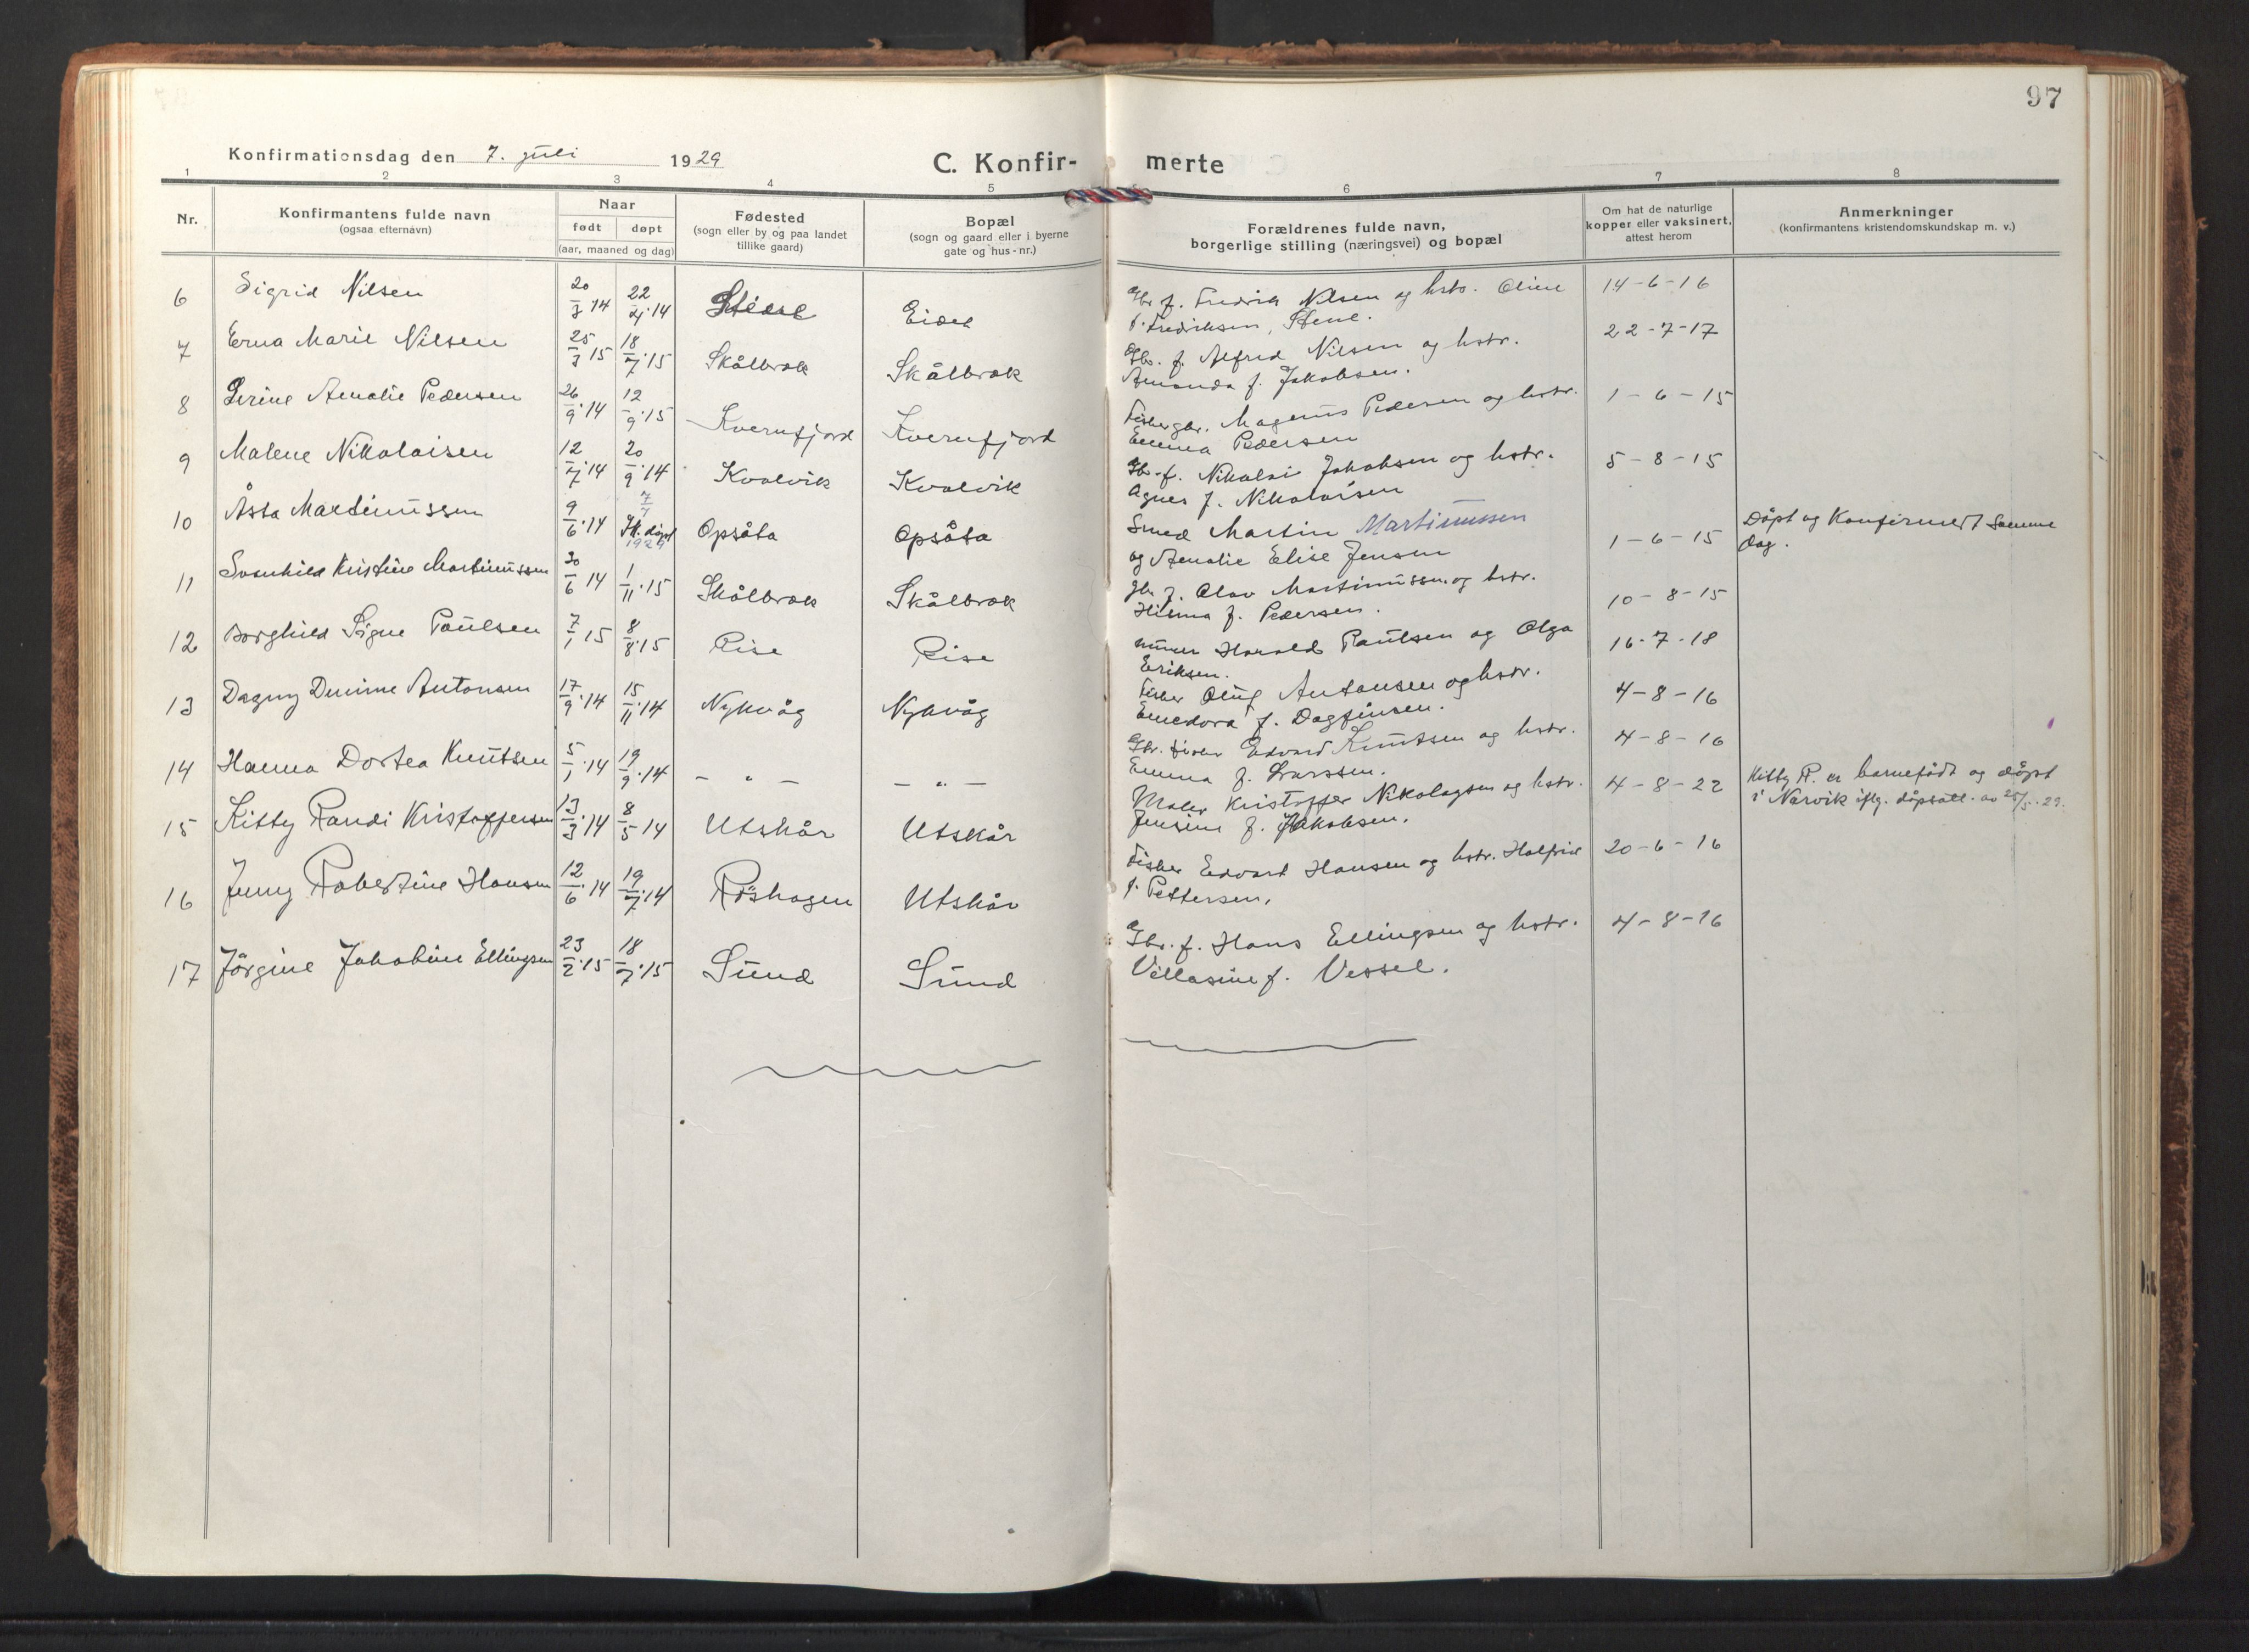 97
Konfirmationsdag den 7. juli 1929
C. Konfir- merte
1 2 3 4 5 6 7 8
Nr.
Konfirmantens fulde navn
(ogsaa efternavn)
Naar
født døpt
(aar, maaned og dag)
Fødested
(sogn eller by og paa landet
tillike gaard)
Bopæl
(sogn og gaard eller i byerne
gate og hus-nr.)
Forældrenes fulde navn,
borgerlige stilling (næringsvei) og bopæl
Om hat de naturlige
kopper eller vaksinert,
attest herom
Anmerkninger
(konfirmantens kristendomskundskap m. v.)
6 Sigrid Nilsen 20/3 14 22/4 14 Eidet Gbr. f. Fredrik Nilsen og hstr. Oline 14-6-16
f. Fredriksen, Stene.
7 Erna Marie Nilsen 25/3 15 18/7 15 Skålbrok Skålbrok Gbr. f. Alfred Nilsen og hstr. 22-7-17
Amanda f. Jakobsen.
8 Serine Amalie Pedersen 26/9 14 12/9 15 Kvernfjord Kvernfjord Fisker gbr. Magnus Pedersen og hstr. 1-6-15
Emma Pedersen
9 Malene Nikolaisen 12/7 14 20/9 14 Kvalvik Kvalvik Gbr. f. Nikolai Jakobsen og hstr. 5-8-15
Agnes f. Nikolaisen
10 Åsta Martinussen 9/6 14 7/7 1929 Opsåta Opsåta Smed Martin Martinussen 1-6-15 Døpt og Konfirmert samme
og Amalie Elise Jensen dag.
11 Svanhild Kristine Martinussen 30/6 14 1/11 15 Skålbrok Skålbrok Gbr. f. Olav Martinussen og hstr. 10-8-15
Hilma f. Pedersen.
12 Borghild Signe Paulsen 7/1 15 8/8 15 Rise Rise Harald Paulsen og Olga 16-7-18
Eriksen.
13 Dagny Antonsen 17/9 14 15/11 14 Nykvåg Nykvåg Fisker Oluf Antonsen og hstr. 4-8-16
f. Dagfinsen.
14 Hanna Dortea Knutsen 5/1 14 19/9 14 - " - - " - Gbr. fisker Edvard Knutsen og hstr. 4-8-16
Emma f. Larssen.
15 Kitty Randi Kristoffersen 13/3 14 8/5 14 Utskår Utskår Maler Kristoffer Nikolaysen og hstr. 4-8-22 Kitty R. er barnefødt og døpt
Jensine f. Jakobsen. i Narvik iflg. døpsatt. av 25/5. 29.
16 Jenny Robertine Hansen 12/6 14 19/7 14 Røshagen Utskår Fisker Edvart Hansen og hstr. Halfrid 20-6-16
f. Pettersen.
17 Jørgine Jakobine Ellingsen 23/2 15 18/7 15 Sund Sund Gbr. f. Hans Ellingsen og hstr. 4-8-16
Villasine f. Vessel.